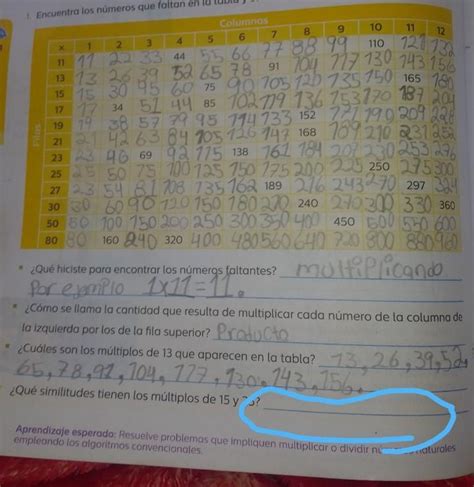 1. Encuentra los números que faltan en la tabla y
Columnas
x 1 2 3 4 5 6 7 8 9 10 11 12
11 11 22 33 44 55 66 77 88 99 110 121 132
13 13 26 39 52 65 78 91 104 117 130 143 156
15 15 30 45 60 75 90 105 120 135 150 165 180
17 17 34 51 44 85 102 119 136 153 170 187 204
19 19 38 57 79 95 114 133 152 171 190 209 228
Filas
21 21 42 63 84 105 126 147 168 189 210 231 252
23 23 46 69 92 115 138 161 184 207 230 253 276
25 25 50 75 100 125 150 175 200 225 250 275 300
27 27 54 81 108 135 162 189 216 243 270 297 324
30 30 60 90 120 150 180 210 240 270 300 330 360
50 50 100 150 200 250 300 350 400 450 500 550 600
80 80 160 240 320 400 480 560 640 720 800 880 960
¿Qué hiciste para encontrar los números faltantes? multiplicando
Por ejemplo 1x11=11.
¿Cómo se llama la cantidad que resulta de multiplicar cada número de la columna de
la izquierda por los de la fila superior? Producto
¿Cuáles son los múltiplos de 13 que aparecen en la tabla? 13, 26, 39, 52,
65, 78, 91, 104, 117, 130, 143, 156.
¿Qué similitudes tienen los múltiplos de 15 y
Aprendizaje esperado: Resuelve problemas que impliquen multiplicar o dividir naturales
empleando los algoritmos convencionales.